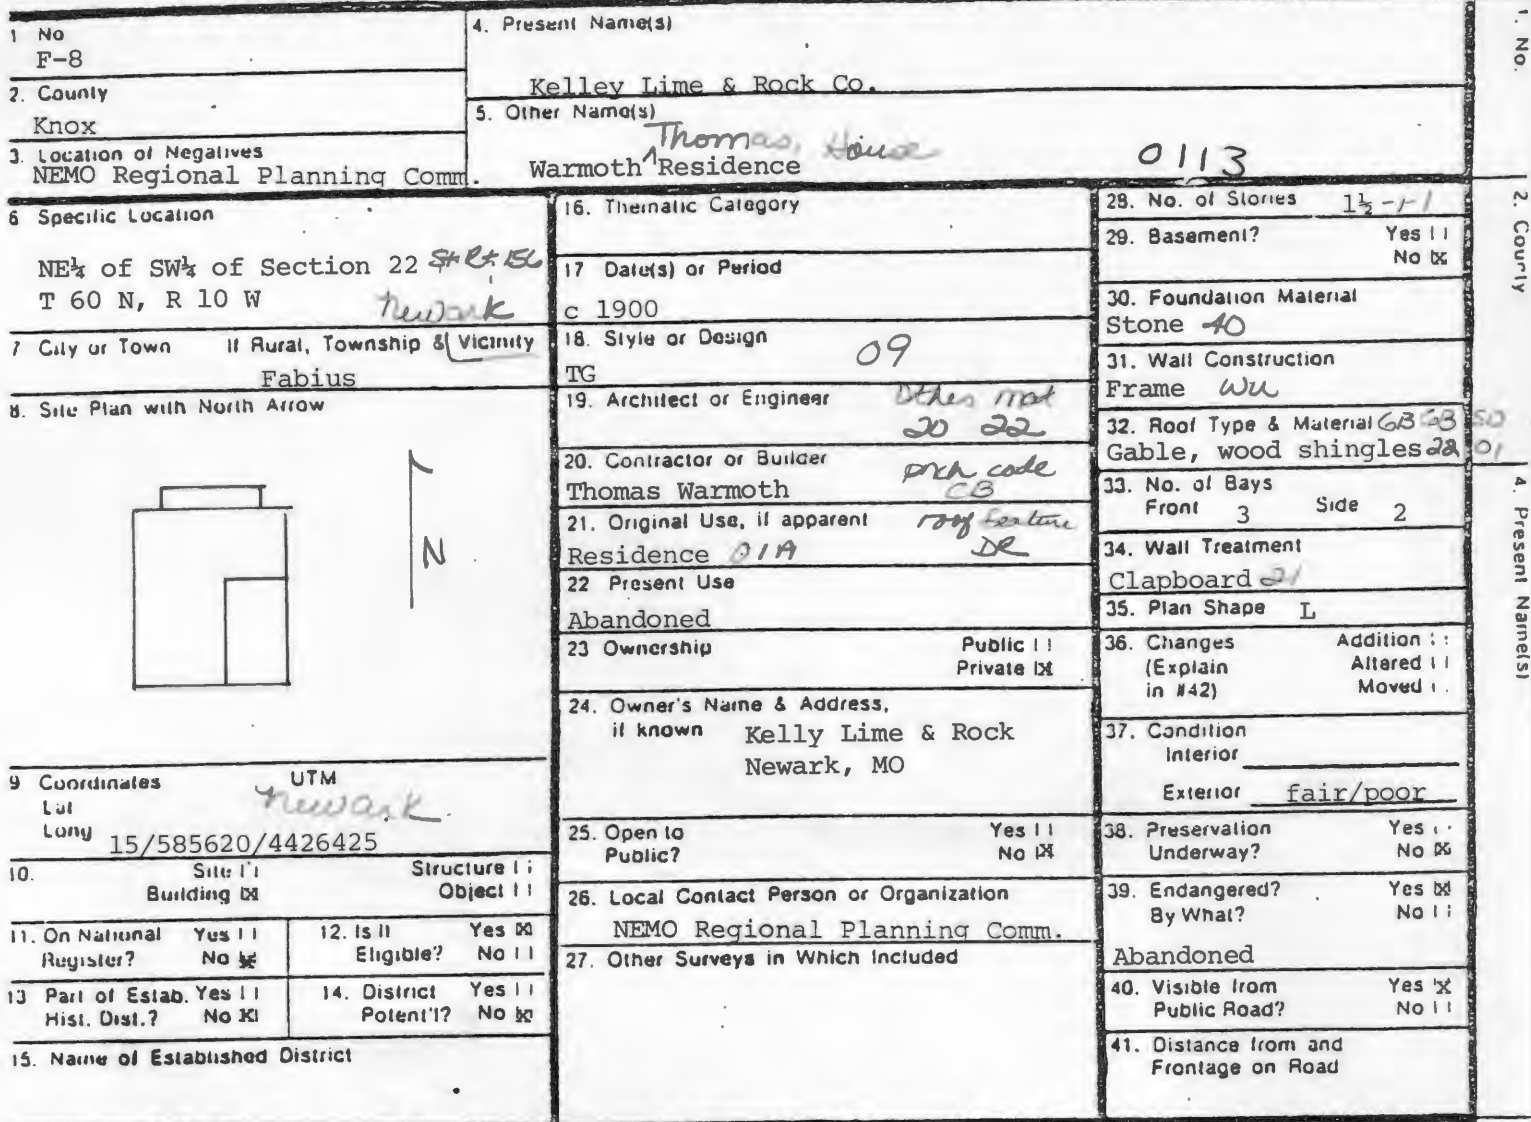 1 No
F-8
2. County
Knox
3. Location of Negatives
NEMO Regional Planning Comm.
4. Present Name(s)
Kelley Lime & Rock Co.
5. Other Name(s)
Thomas, House
Warmoth ^ Residence
0113
6 Specific Location
NE¼ of SW¼ of Section 22 St Rt 156
T 60 N, R 10 W Newark
7 City or Town If Rural, Township & Vicinity
Fabius
8. Site Plan with North Arrow
N
9 Coordinates UTM
Lat Newark
Long 15/585620/4426425
10. Site [ ] Structure [ ]
Building [X] Object [ ]
11. On National Yes [ ]
Register? No [X]
12. Is It Yes [X]
Eligible? No [ ]
13 Part of Estab. Yes [ ]
Hist. Dist.? No [X]
14. District Yes [ ]
Potent'l? No [X]
15. Name of Established District
16. Thematic Category
17 Date(s) or Period
c 1900
18. Style or Design 09
TG
19. Architect or Engineer Other mat
20 22
20. Contractor or Builder prch code
Thomas Warmoth CB
21. Original Use, if apparent roof feature
Residence 01A DR
22 Present Use
Abandoned
23 Ownership Public [ ]
Private [X]
24. Owner's Name & Address,
if known Kelly Lime & Rock
Newark, MO
25. Open to Yes [ ]
Public? No [X]
26. Local Contact Person or Organization
NEMO Regional Planning Comm.
27. Other Surveys in Which Included
28. No. of Stories 1½-1-1
29. Basement? Yes [ ]
No [X]
30. Foundation Material
Stone 40
31. Wall Construction
Frame WU
32. Roof Type & Material GB GB SD
Gable, wood shingles 22 01
33. No. of Bays
Front 3 Side 2
34. Wall Treatment
Clapboard 21
35. Plan Shape L
36. Changes Addition [ ]
(Explain Altered [ ]
in #42) Moved [ ]
37. Condition
Interior
Exterior fair/poor
38. Preservation Yes [ ]
Underway? No [X]
39. Endangered? Yes [X]
By What? No [ ]
Abandoned
40. Visible from Yes [X]
Public Road? No [ ]
41. Distance from and
Frontage on Road
1. No.
2. County
4. Present Name(s)